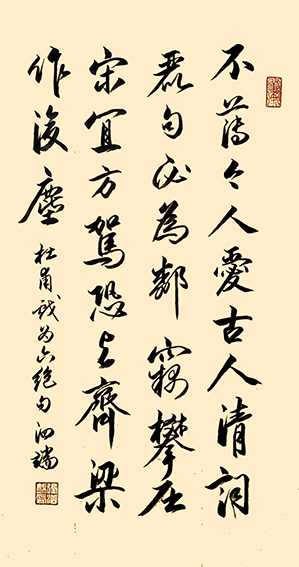 不薄今人愛古人清詞
麗句必為鄰竊攀屈
宋宜方駕恐與齊梁
作後塵
杜甫戲為六絕句